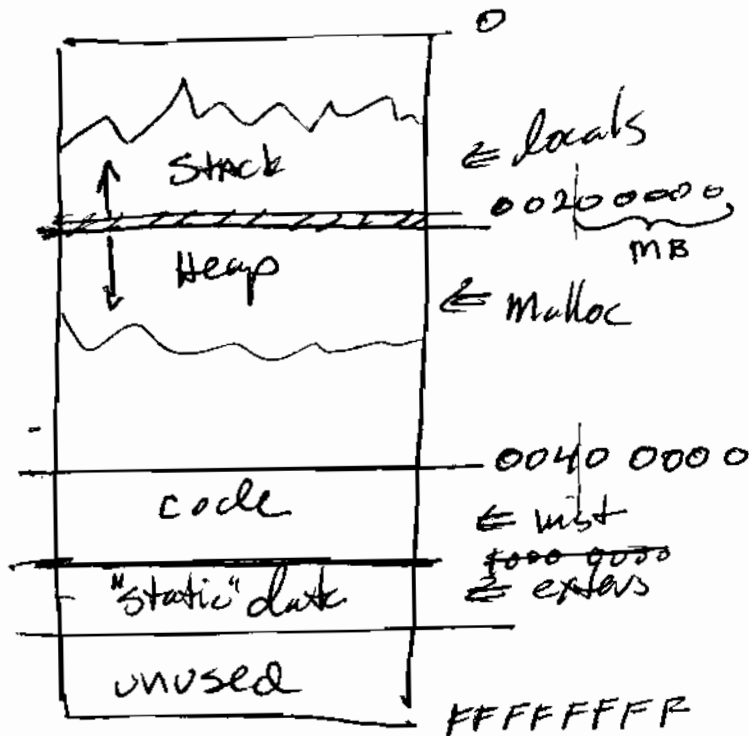 0
Stack
⇐ locals
00200000
MB
Heap
⇐ Malloc
0040 0000
code
⇐ inst
"static" data
⇐ externs
unused
FFFFFFFF